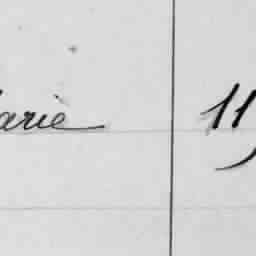 arie 11